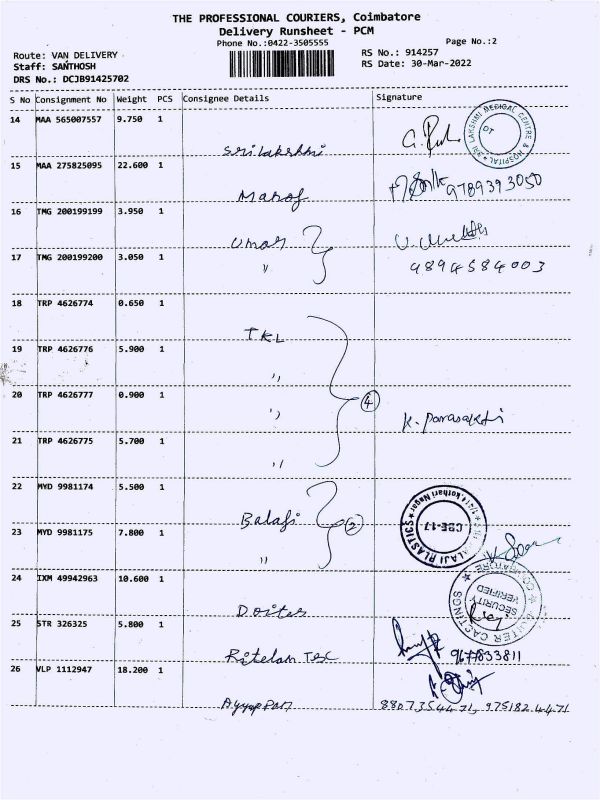 THE PROFESSIONAL COURIERS, Coimbatore
Delivery Runsheet - PCM
Phone No.:0422-3505555
Page No.:2
Route: VAN DELIVERY
RS No.: 914257
Staff: SANTHOSH
RS Date: 30-Mar-2022
DRS No.: DCJB91425702
S No Consignment No Weight PCS Consignee Details Signature
14 MAA 565007557 9.750 1
Srilakshmi
SRI LAKSHMI MEDICAL CENTRE & HOSPITAL
OT
15 MAA 275825095 22.600 1
9789393050
16 TMG 200199199 3.950 1
Umar
17 TMG 200199200 3.050 1
"
9894584003
18 TRP 4626774 0.650 1
TKL
19 TRP 4626776 5.900 1
"
20 TRP 4626777 0.900 1
" 4
K. Parasakthi
21 TRP 4626775 5.700 1
"
22 MYD 9981174 5.500 1
Balaji 2
CBE-17
23 MYD 9981175 7.800 1
"
24 IXM 49942963 10.600 1
SECURITY
VERIFIED
25 STR 326325 5.800 1
9677833811
26 VLP 1112947 18.200 1
8807354471, 9751824471